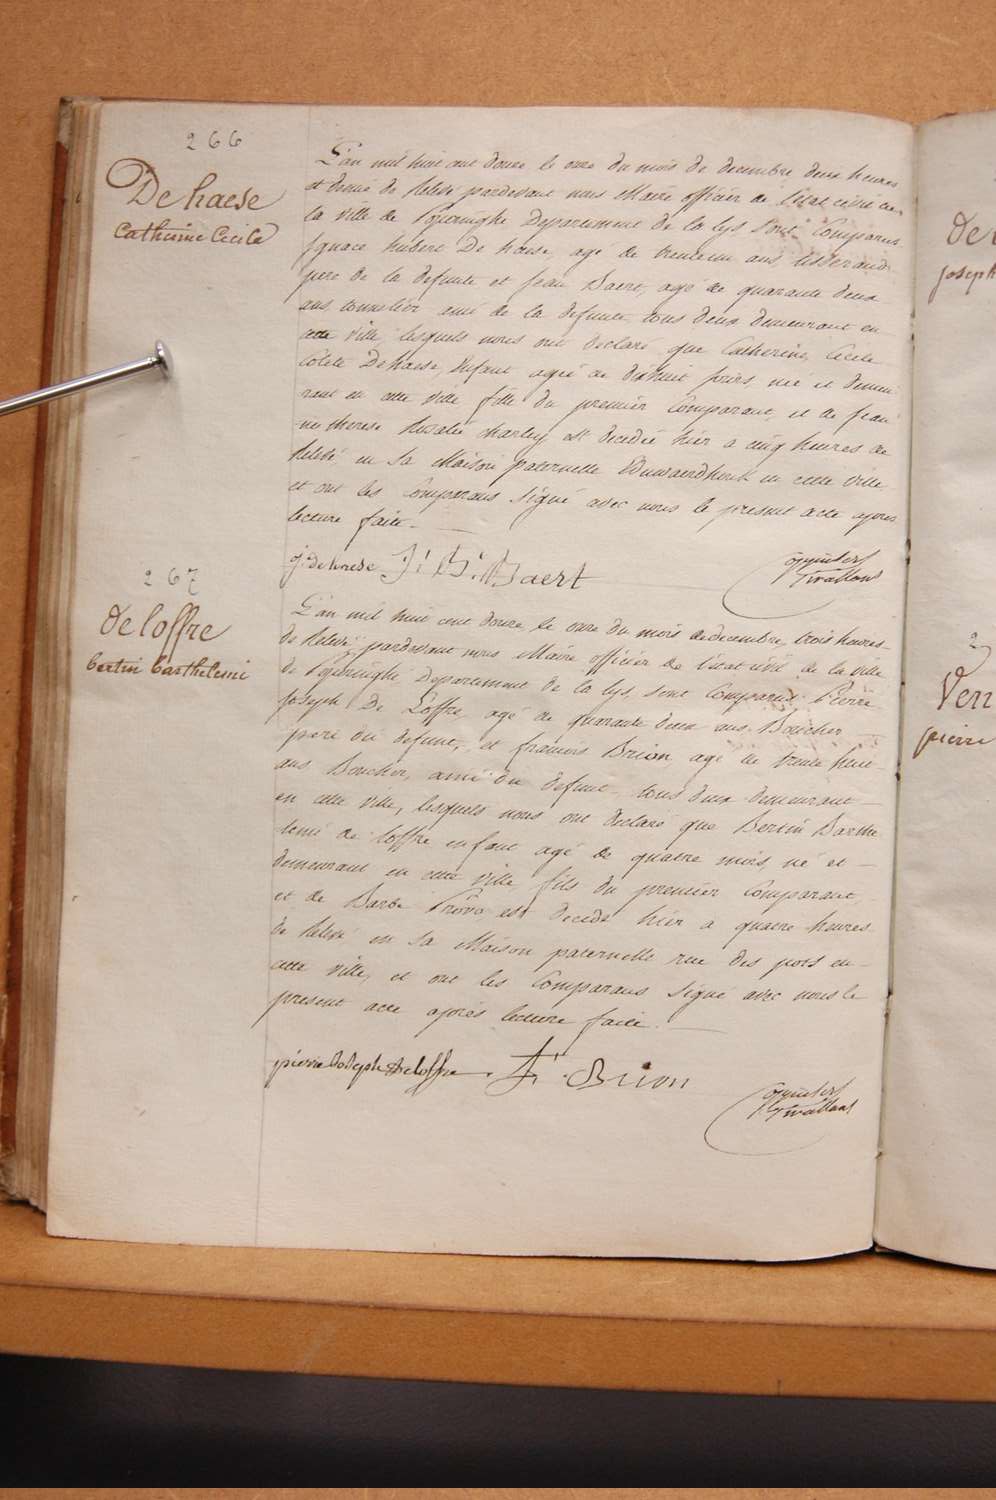 266
De haese
Catherine Cecile
L'an mil huit cent douze le onze du mois de decembre deux heures
et demie de Relevé pardevant nous Maire officier de l'état civil de
la ville de Poperinghe Departement de la Lys Sont Comparus
Ignace hubert De haese, age de trente un ans, tisserand
pere de la defunte et jean Baert, agé de quarante deux
ans, tonnelier ami de la defunte tous deux demeurant en
cette ville, lesquels nous ont declaré que Catherine, Cecile
Colete Dehaese, Enfant agée de dixhuit jours, née et demeu
rant en cette ville fille du premier Comparant, et de jean
ne therese Rosalie Charley est decedée hier a cinq heures de
Relevé en sa Maison paternelle en cette ville
et ont les Comparans Signé avec nous le present acte apres
lecture faite.
j: de haese J: B: Baert
267
de loffre
bertin barthelemi
L'an mil huit cent douze le onze du mois de decembre, trois heures
de Relevé, pardevant nous Maire officier de l'état civil de la ville
de Poperinghe Departement de la Lys, sont Comparus Pierre
Joseph De Loffre, agé de quarante deux ans Boucher
pere du defunt, et francois Brion agé de trente huit
ans Boucher, ami du defunt tous deux demeurant
en cette ville, lesquels nous ont declaré que Bertin Barthe
lemi de loffre enfant agé de quatre mois, né et
demeurant en cette ville fils du premier Comparant,
et de Barbe Provo est decedé hier a quatre heures
de Relevé en sa Maison paternelle rue des pots en
cette ville, et ont les Comparans Signé avec nous le
present acte après lecture faite.
pierre Joseph deloffre F: Brion
De
joseph
2
Verr
pierre